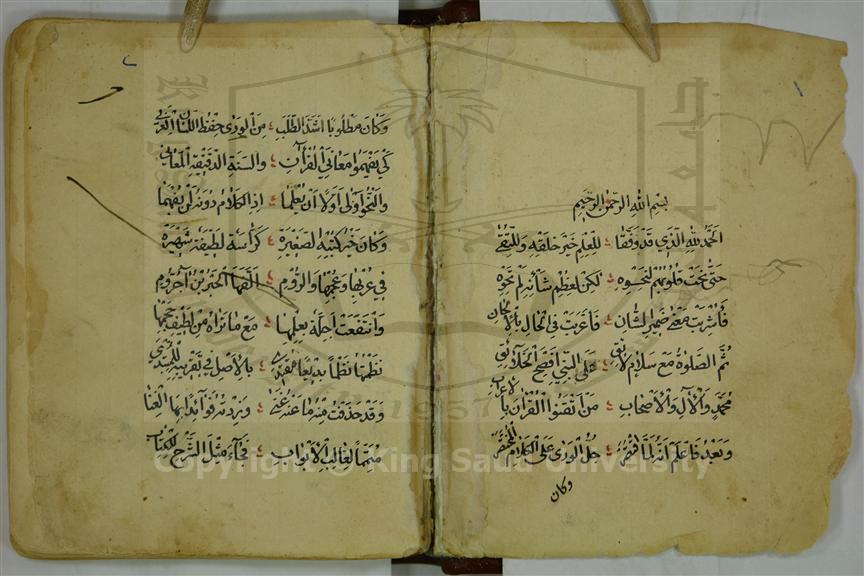 بسم الله الرحمن الرحيم
الحمد لله الذي قد وفقا للعلم خير خلقه وللتقى
حتى نحت قلوبهم لنحوه لكن لعظم شأنه لم تحوه
فأشربت معنى ضمير الشان فأعربت في الحال بالألحان
ثم الصلوة مع سلام لائق على النبي أفصح الخلائق
محمد والآل والأصحاب من أتقنوا القرآن بالاعراب
وبعد فاعلم أنه لما اقتصر جل الورى على الكلام المختصر
وكان
وكان مطلوبا أشد الطلب من الورى حفظ اللسان العربي
كي يفهموا معاني القرآن والسنة الدقيقة المعاني
والنحو أولى أولا أن يعلما إذ الكلام دونه لن يفهما
وكان خير كتبه الصغيرة كراسة لطيفة شهيرة
في عربها وعجمها والروم ألفها الحبر بن آجروم
وانتفعت أجلة بعلمها مع ما تراه من لطيف حجمها
نظمتها نظما بديعا مقتدي بالأصل في تقريبه للمبتدي
وقد حذفت منه ما عنه غنى وزدته فوائدا بها الغنا
متمما لغالب الأبواب فجاء مثل الشرح للكتاب
جامعة
1957
Copyright © King Saud University